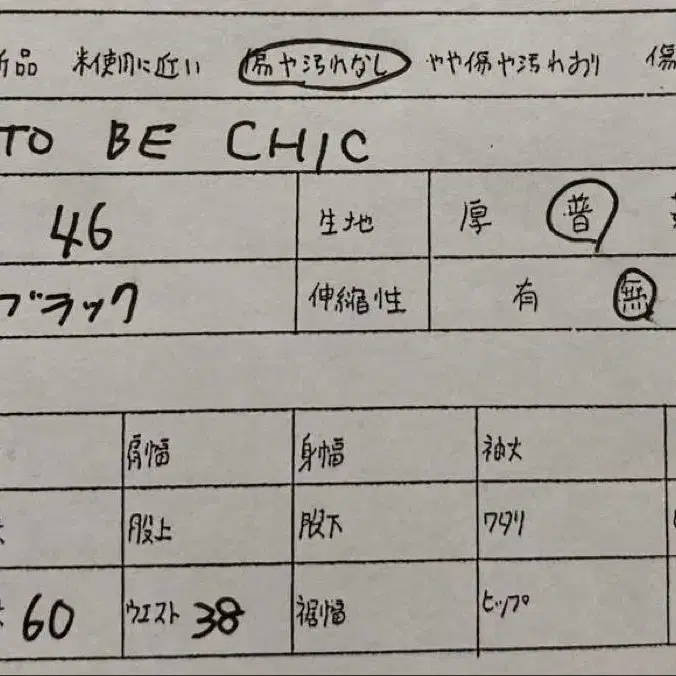 新品 未使用に近い 傷や汚れなし やや傷や汚れあり 傷
TO BE CHIC
46 生地 厚 普
ブラック 伸縮性 有 無
肩幅 身幅 袖丈
股上 股下 ワタリ
60 ウエスト 38 裾幅 ヒップ